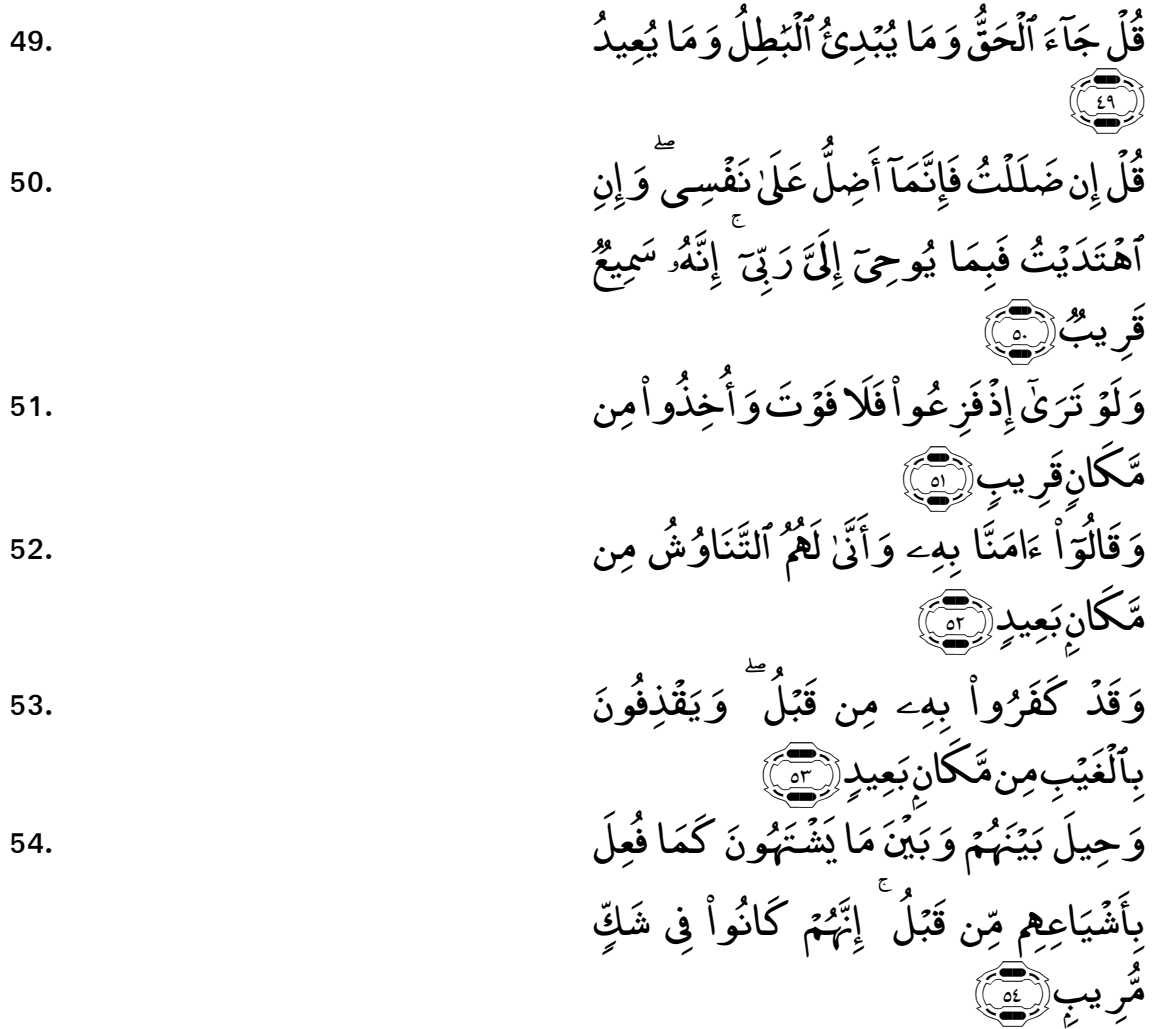 49. قُلْ جَآءَ ٱلْحَقُّ وَمَا يُبْدِئُ ٱلْبَٰطِلُ وَمَا يُعِيدُ
٤٩
50. قُلْ إِن ضَلَلْتُ فَإِنَّمَآ أَضِلُّ عَلَىٰ نَفْسِى ۖ وَإِنِ
ٱهْتَدَيْتُ فَبِمَا يُوحِىٓ إِلَىَّ رَبِّىٓ ۚ إِنَّهُۥ سَمِيعٌ
قَرِيبٌ ٥٠
51. وَلَوْ تَرَىٰٓ إِذْ فَزِعُوا۟ فَلَا فَوْتَ وَأُخِذُوا۟ مِن
مَّكَانٍ قَرِيبٍ ٥١
52. وَقَالُوٓا۟ ءَامَنَّا بِهِۦ وَأَنَّىٰ لَهُمُ ٱلتَّنَاوُشُ مِن
مَّكَانٍۭ بَعِيدٍ ٥٢
53. وَقَدْ كَفَرُوا۟ بِهِۦ مِن قَبْلُ ۖ وَيَقْذِفُونَ
بِٱلْغَيْبِ مِن مَّكَانٍۭ بَعِيدٍ ٥٣
54. وَحِيلَ بَيْنَهُمْ وَبَيْنَ مَا يَشْتَهُونَ كَمَا فُعِلَ
بِأَشْيَاعِهِم مِّن قَبْلُ ۚ إِنَّهُمْ كَانُوا۟ فِى شَكٍّ
مُّرِيبٍۭ ٥٤